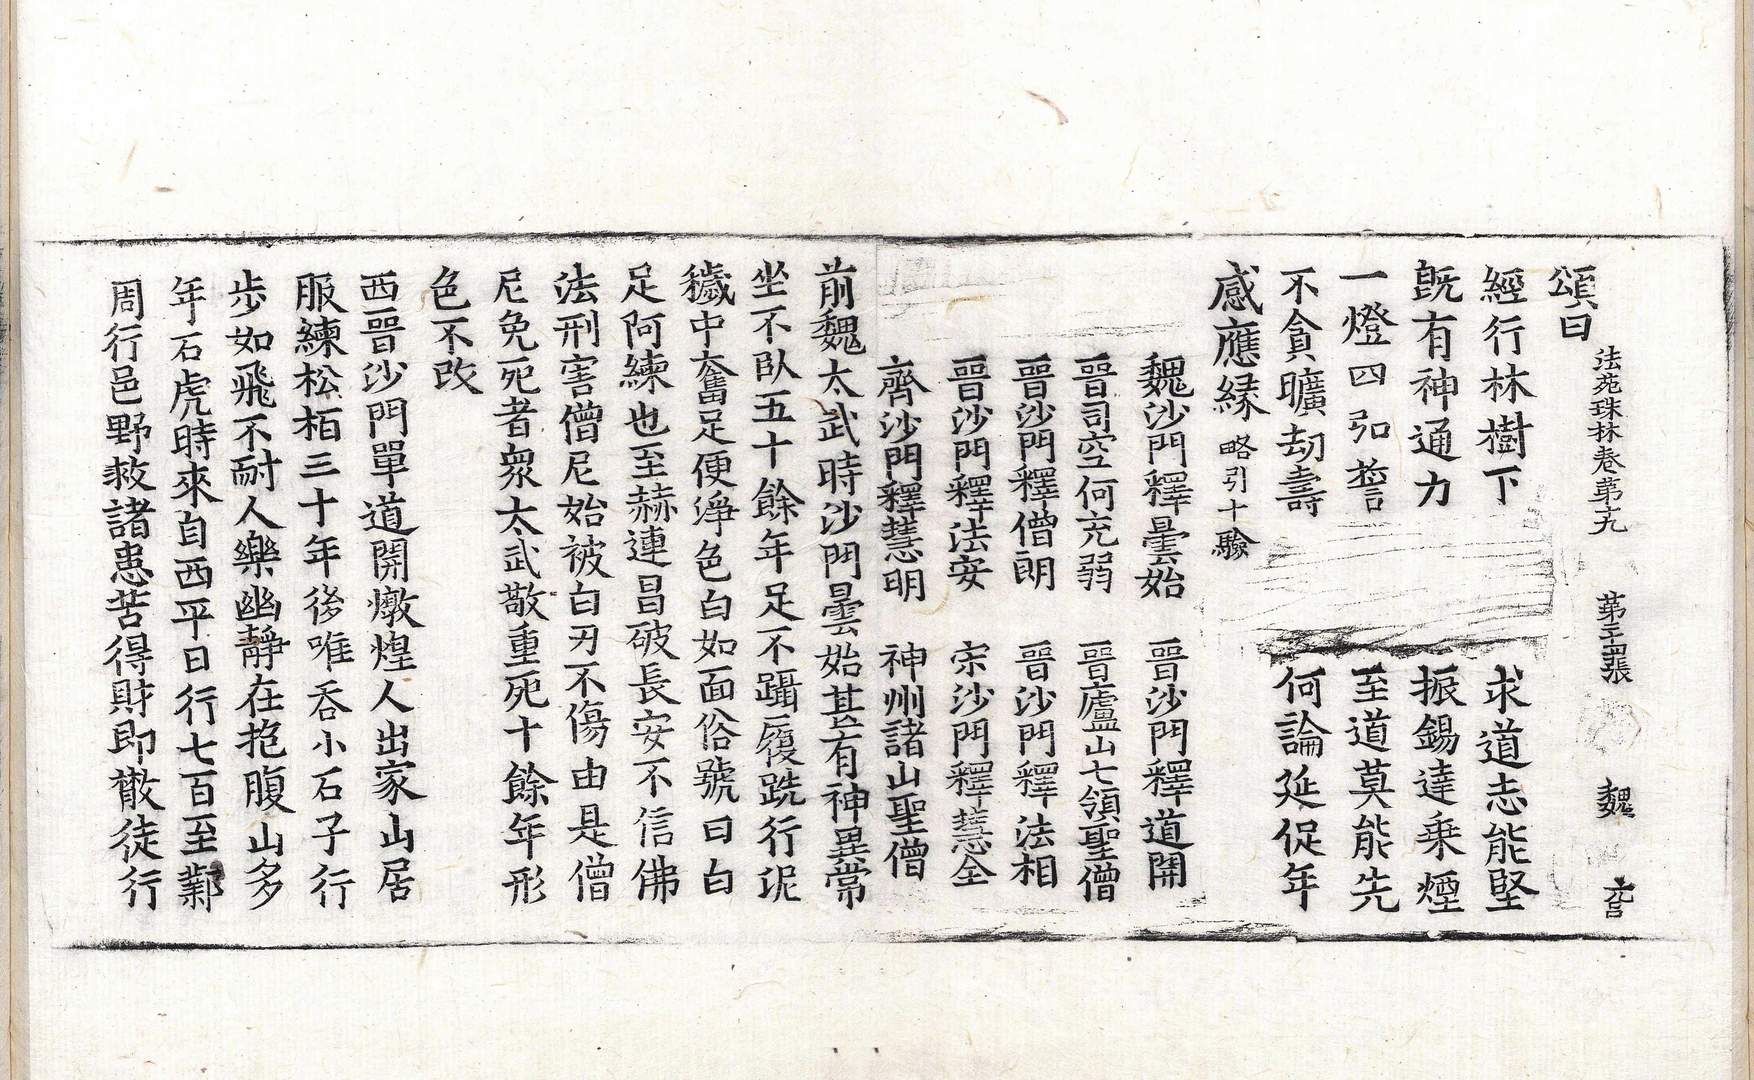 頌曰
法苑珠林卷第十九 第二十四張 魏
經行林樹下 求道志能堅
旣有神通力 振錫達乗煙
一燈四弘誓 至道莫能先
不貪曠劫壽 何論延促年
感應縁 略引十驗
魏沙門釋曇始 晉沙門釋道開
晉司空何充弱 晉廬山七領聖僧
晉沙門釋僧朗 晉沙門釋法相
晉沙門釋法安 宋沙門釋慧全
齊沙門釋慧明 神州諸山聖僧
前魏太武時沙門曇始甚有神異常
坐不臥五十餘年足不躡履跣行泥
穢中奮足便淨色白如面俗號曰白
足阿練也至赫連昌破長安不信佛
法刑害僧尼始被白刃不傷由是僧
尼免死者衆太武敬重死十餘年形
色不改
西晉沙門單道開燉煌人出家山居
服練松栢三十年後唯呑小石子行
步如飛不耐人樂幽靜在抱腹山多
年石虎時來自西平日行七百至鄴
周行邑野救諸患苦得財即散徒行